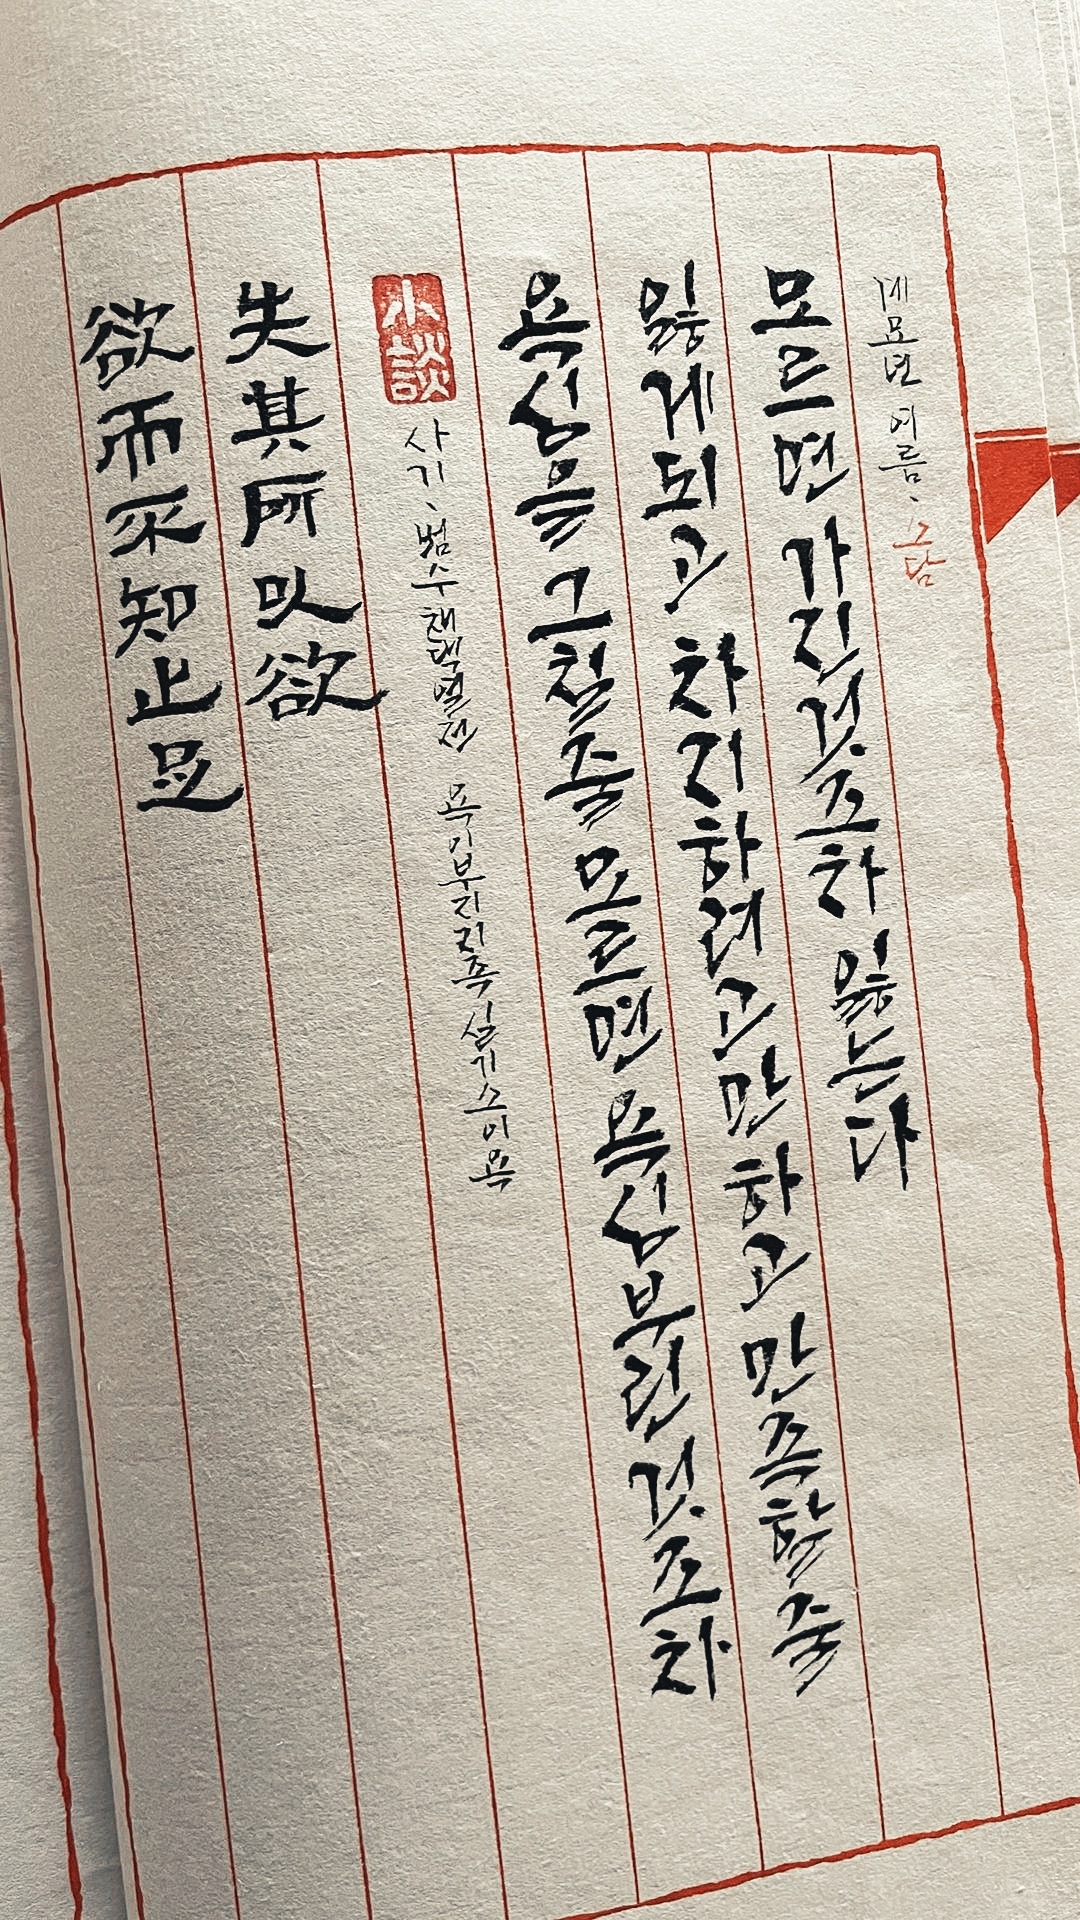 欲而不知止足
失其所以欲
小談
사기、범수채택열전 욕이부지지족 실기소이욕
욕심을 그칠줄 모르면 욕심부린것조차
잃게되고 차지하려고만 하고 만족할줄
모르면 가진것조차 잃는다
계묘년 여름、소담